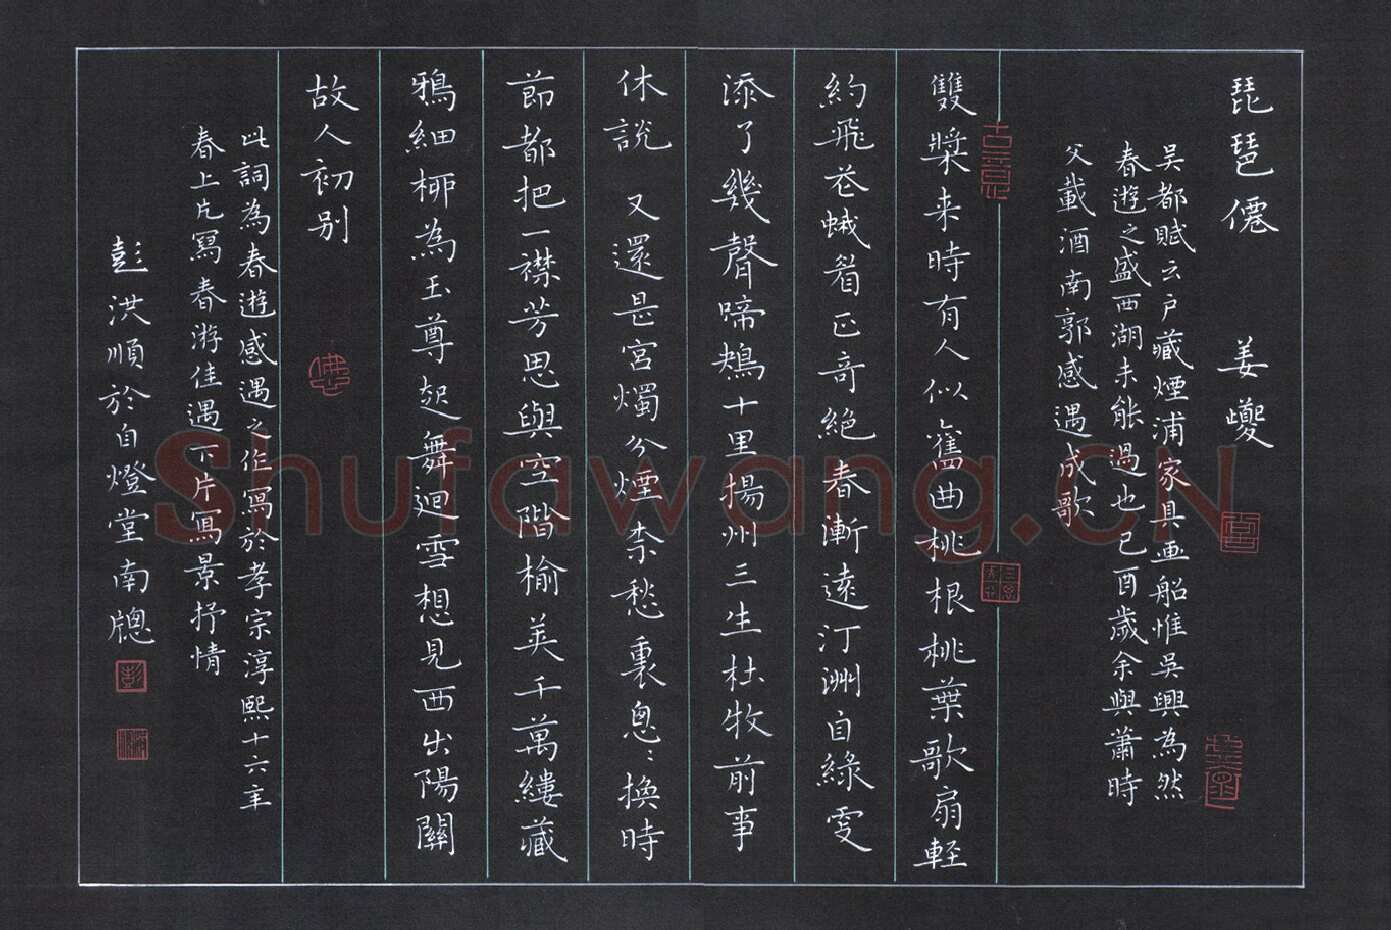 琵琶僊　姜夔
吳都賦云户藏煙浦家具畫船惟吳興為然
春遊之盛西湖未能過也己酉歲余與蕭時
父載酒南郭感遇成歌
雙槳来時有人似舊曲桃根桃葉歌扇輕
約飛花蛾眉正奇絕春漸遠汀洲自綠更
添了幾聲啼鴂十里揚州三生杜牧前事
休說　又還是宮燭分煙柰愁裏悤〻換時
節都把一襟芳思與空階榆莢千萬縷藏
鴉細栁為玉尊起舞迴雪想見西出陽關
故人初别
此詞為春遊感遇之作寫於孝宗淳熙十六年
春上片寫春游佳遇下片寫景抒情
彭洪順於自燈堂南牕
Shufawang.CN